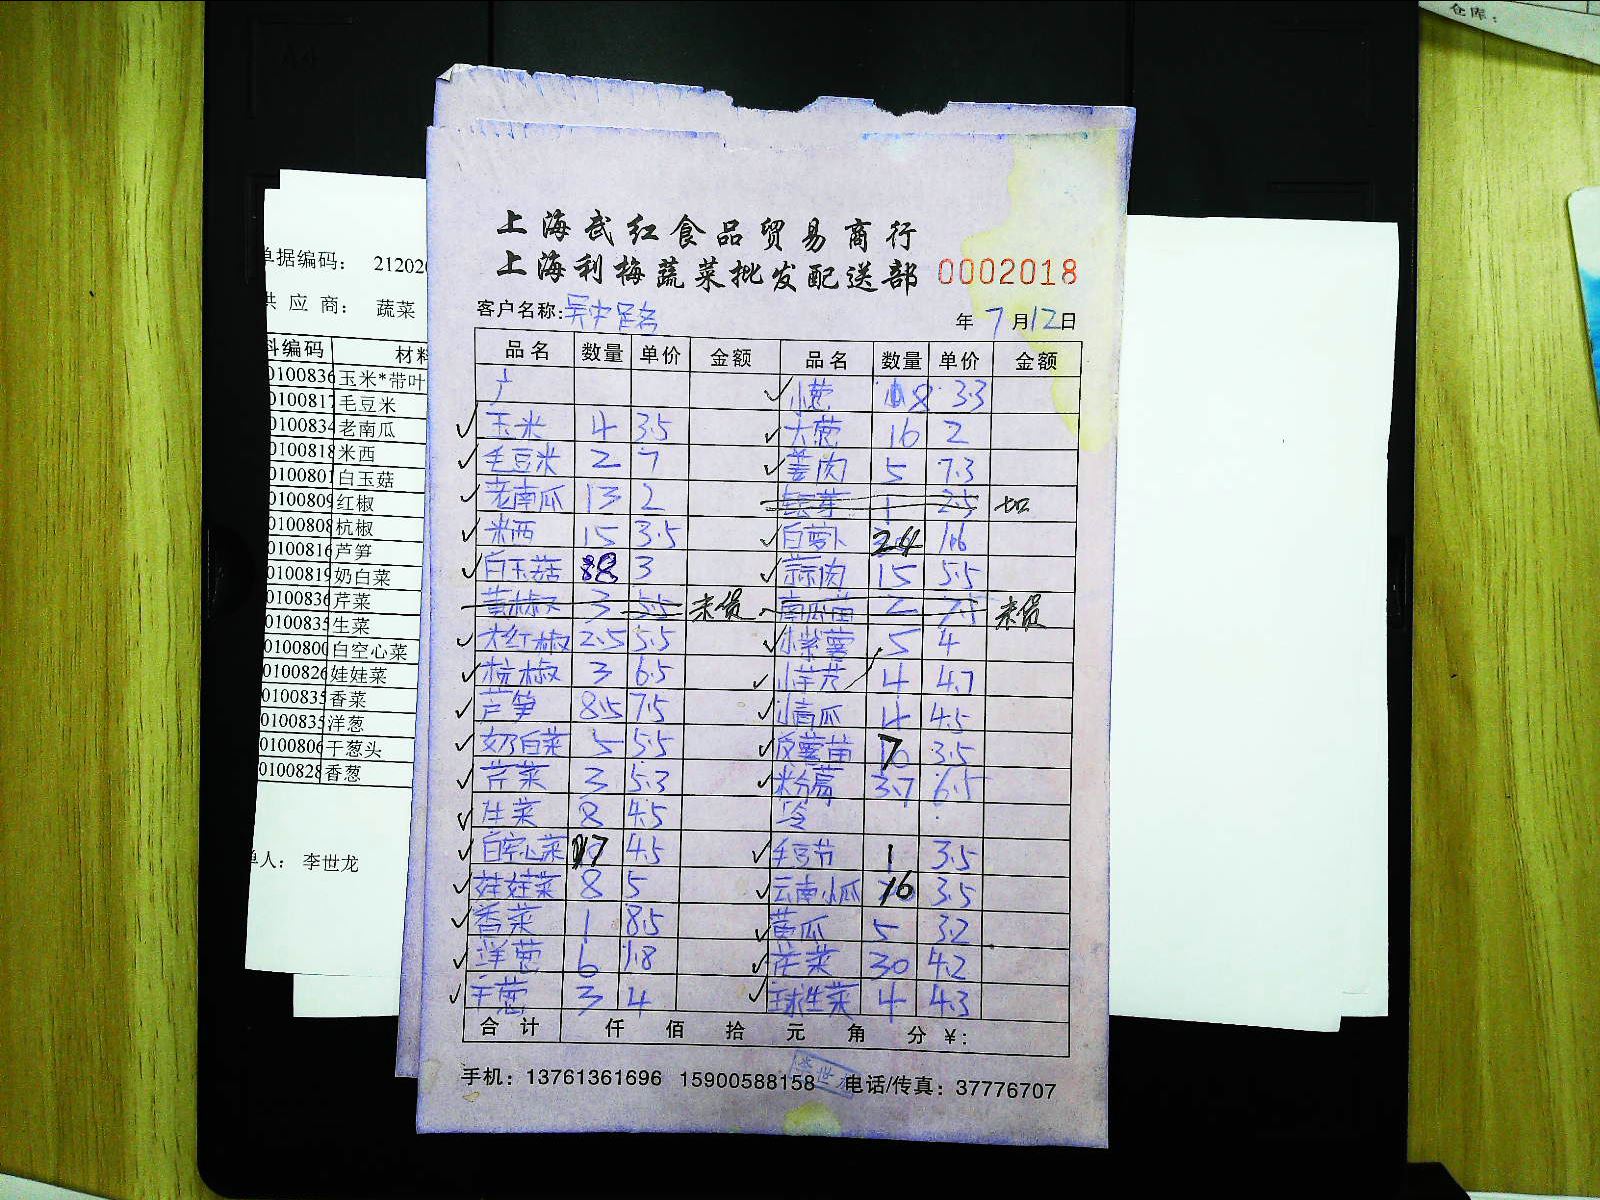 仓库:
单据编码: 212020
供 应 商: 蔬菜
料编码 材料
0100836 玉米*带叶
0100817 毛豆米
0100834 老南瓜
0100818 米西
0100801 白玉菇
0100809 红椒
0100808 杭椒
0100816 芦笋
0100819 奶白菜
0100836 芹菜
0100835 生菜
0100800 白空心菜
0100826 娃娃菜
0100835 香菜
0100835 洋葱
0100806 干葱头
0100828 香葱
单人: 李世龙
上海武红食品贸易商行
上海利梅蔬菜批发配送部 0002018
客户名称: 吴中 年 7 月 12 日
品名 数量 单价 金额 品名 数量 单价 金额
小葱 8 3.3
玉米 4 3.5 大葱 16 2
毛豆米 2 7 姜肉 5 7.3
老南瓜 13 2 银芽 1 2.5
米西 15 3.5 白萝卜 24 1.6
白玉菇 8 3 蒜肉 15 5.5
黄椒 3 5.5 未货 南瓜苗 2 7.5 未货
大红椒 2.5 5.5 小紫薯 5 4
杭椒 3 6.5 小芋艿 4 4.7
芦笋 8.5 7.5 小青瓜 4 4.5
奶白菜 5 5.5 反薯苗 7 3.5
芹菜 3 5.3 粉葛 3.7 6.5
生菜 8 4.5 冷
白空心菜 17 4.5 毛豆节 1 3.5
娃娃菜 8 5 云南小瓜 16 3.5
香菜 1 8.5 黄瓜 5 3.2
洋葱 6 1.8 茳菜 30 4.2
干葱 3 4 球生菜 4 4.3
合 计 仟 佰 拾 元 角 分 ¥:
手机: 13761361696 15900588158 电话/传真: 37776707